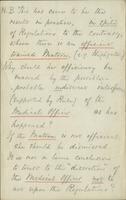 N.B This has come to be the
result in practice, in spite
of Regulations to the contrary,
where there is an efficient
trained Matron. (e.g. Haslar)
Why should her efficiency be
marred by the possible
probable indiscreet interference
(supported by Rules) of the
Medical Officer as has
happened?
If the Matron is not efficient
she should be dismissed
It is not a lame conclusion
to trust to the discretion of
the Medical Officer not to
act upon the Regulations?